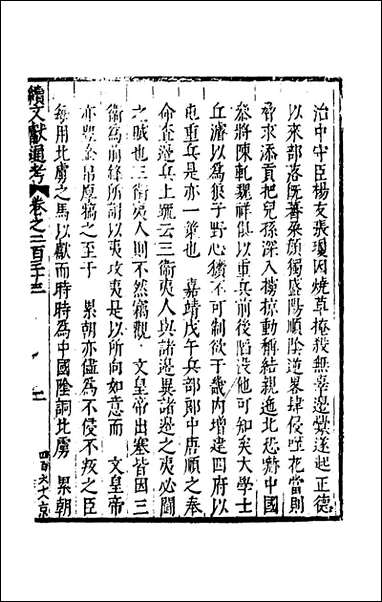 治中守臣楊友張瓊因燒草掩殺無辜邊釁遂起正德
以來部落旣蕃朶顏獨盛陽順陰逆畧肆侵噬花當則
脅求添貢把兒孫深入擄掠動稱結親迤北恐嚇中國
叅將陳乾魏祥俱以重兵前後陷沒他可知矣大學士
丘濬以為狼子野心獷不可制欲于畿內增建四府以
屯重兵是亦一筴也 嘉靖戊午兵部郎中唐順之奉
命查邊兵上疏云三衛夷人與諸邊異諸邊之夷必闘
之賊也三衛夷人則不然竊觀 文皇帝出塞皆因三
衛為前鋒所謂以夷攻夷是以所向如意而 文皇帝
亦豐金帛犒之至于 累朝亦僅為不侵不叛之臣
每用北虜之馬以獻而時時為中國陰詗北虜 累朝
續文獻通考 卷之二百三十三 二